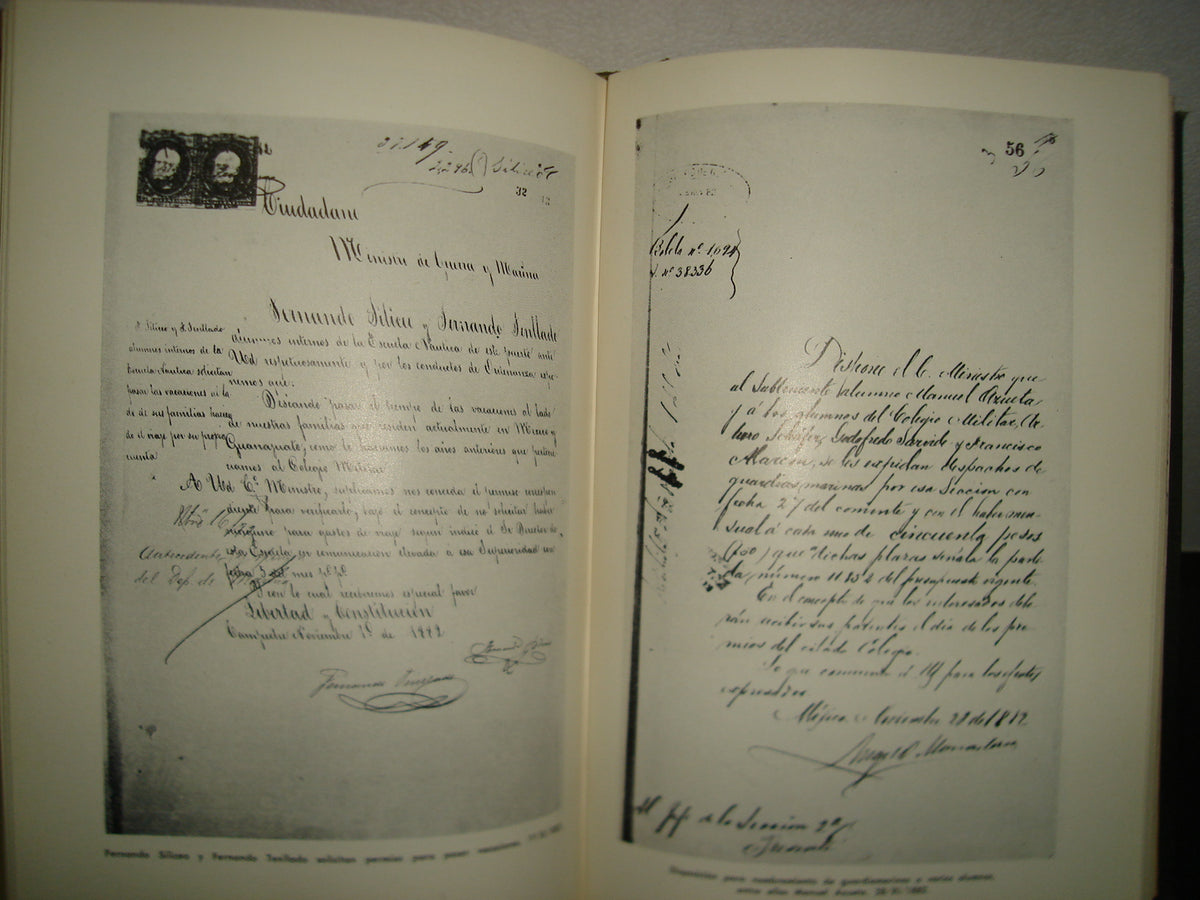 32
Ciudadano
Ministro de Guerra y Marina
Fernando Siliceo y Fernando Tenllado
alumnos internos de la Escuela Náutica de este puerto ante
Ud respetuosamente y por los conductos de Ordenanza expo-
nemos que:
Deseando pasar el tiempo de las vacaciones al lado
de nuestras familias que residen actualmente en Mexico y
Guanajuato, como lo haciamos los años anteriores que pertene-
ciamos al Colegio Militar
A Ud C. Ministro, suplicamos nos conceda el permiso
para verificarlo, bajo el concepto de no solicitar
para gastos de viaje segun indicó el Sr Director de
esta Escuela en comunicacion elevada a esa Superioridad con
fecha 3 del mes
con lo cual recibiremos especial favor
Libertad y Constitución
Campeche Noviembre 1º de 1882
F. Siliceo y F. Tenllado
alumnos internos de la
Escuela Náutica solicitan
pasar las vacaciones al la-
do de sus familias
de el viaje por su propia
cuenta
Antecedente
del Dep. de
Fernando Tenllado
Fernando Siliceo y Fernando Tenllado solicitan permiso para pasar vacaciones.
56
Boleta nº 1,024
nº 38336
Dispone el C. Ministro que
al Subteniente alumno Manuel Azueta
y á los alumnos del Colegio Militar, Ar-
turo Schäfer, Godofredo Sarvide y Francisco
Alarcon, se les expidan despachos de
guardias marinas por esa Seccion con
fecha 27 del corriente y con el haber men-
sual á cada uno de cincuenta pesos
que dichas plazas señala la parti-
da número 11852 del presupuesto vigente.
En el concepto de que los interesados debe-
rán recibir sus patentes el dia de los pre-
mios del citado Colegio.
Lo que comunico á Ud para los efectos
expresados
Méjico 28 de 1882
Al Jefe de la Seccion 2ª
Presente
Disposición para nombramiento de guardiamarinas a varios alumnos,
entre ellos Manuel Azueta. 28/XI/1882.